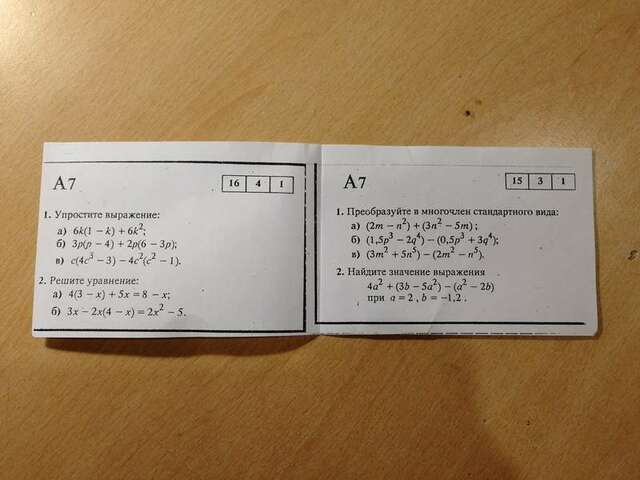 А7
16 4 1
1. Упростите выражение:
а) 6k(1 − k) + 6k²;
б) 3p(p − 4) + 2p(6 − 3p);
в) c(4c³ − 3) − 4c²(c² − 1).
2. Решите уравнение:
а) 4(3 − x) + 5x = 8 − x;
б) 3x − 2x(4 − x) = 2x² − 5.
А7
15 3 1
1. Преобразуйте в многочлен стандартного вида:
а) (2m − n²) + (3n² − 5m);
б) (1,5p³ − 2q⁴) − (0,5p³ + 3q⁴);
в) (3m² + 5n⁵) − (2m² − n⁵).
2. Найдите значение выражения
4a² + (3b − 5a²) − (a² − 2b)
при a = 2 , b = −1,2 .